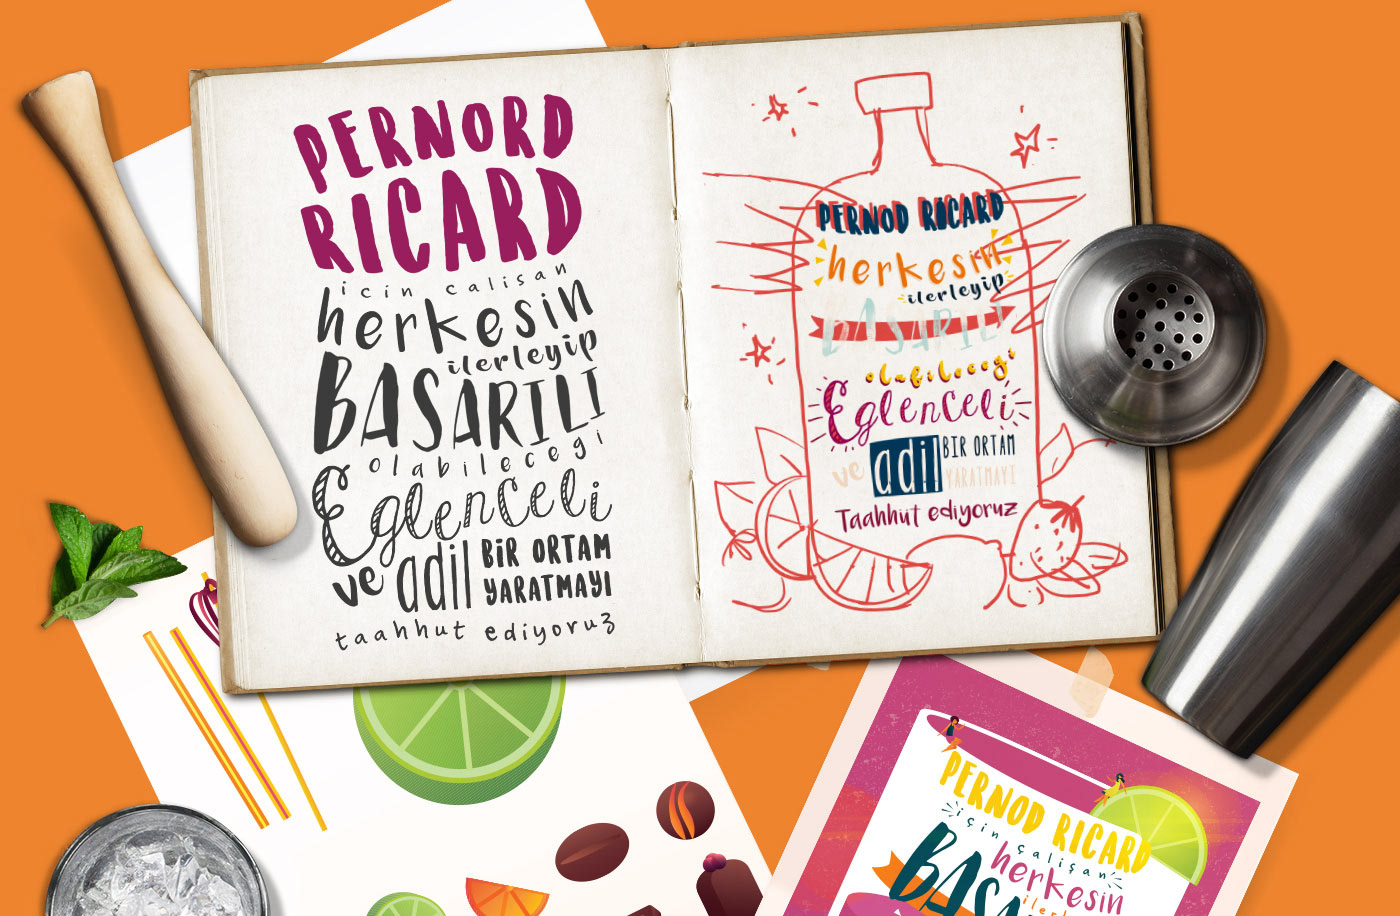 PERNORD
RICARD
icin calisan
herkesin
ilerleyip
BASARILI
olabilecegi
Eglenceli
ve adil BİR ORTAM
YARATMAYI
taahhut ediyoruz
PERNOD RICARD
herkesin
ilerleyip
BASARILI
olabilecegi
Eglenceli
ve adil BIR ORTAM
YARATMAYI
Taahhut ediyoruz
PERNOD RICARD
için çalışan
herkesin